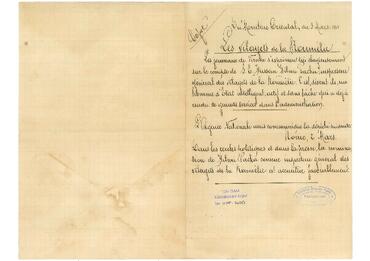 Du Moniteur Oriental, du 3 Mars
Les Vilayets de la Roumélie
Les journaux de Vienne s'expriment élogieusement
sur le compte de S. E. Hussein Hilmi Pacha, inspecteur
Général des vilayets de la Roumélie. C'est disent ils un
homme d'Etat intelligent, actif et sans tâche qui a déjà
rendu de grands services dans l'administration.
L'Agence Nationale nous communique la dépêche suivante:
Rome, 2 Mars.
Dans les cercles politiques et dans la presse, la nomina-
tion de Hilmi Pacha comme inspecteur général des
vilayets de la Roumélie est accueillie favorablement